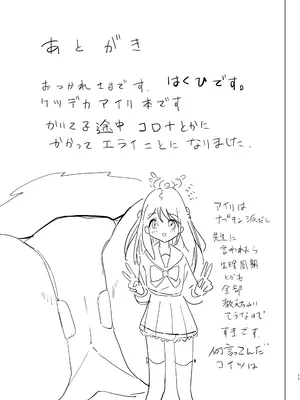 あとがき
おつかれさまです。はくひです。
ケツデカアイリ本です
かいてる途中コロナとかに
かかってエライことになりました。
アイリは
ナプキン派だし
先生に
言われたら
生理周期
とかも
全部
教えちゃい
そうなので
すきです
何言ってんだ
コイツは